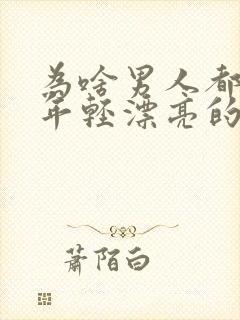 為啥男人都
年輕漂亮的
蕭陌白